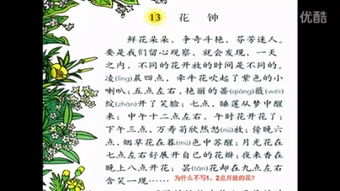 优酷
13 花钟
鲜花朵朵，争奇斗艳，芬芳迷人。
要是我们留心观察，就会发现，一天
之内，不同的花开放的时间是不同的。
凌(líng)晨四点，牵牛花吹起了紫色的小
喇叭；五点左右，艳丽的蔷(qiáng)薇(wēi)
绽(zhàn)开了笑脸；七点，睡莲从梦中醒
来；中午十二点左右，午时花开花了；
下午三点，万寿菊欣然怒(nù)放；傍晚六
点，烟草花在暮色中苏醒；月光花在
七点左右舒展开自己的花瓣；夜来香在
晚上八点开花；昙花却在九点左右
含笑一现……
为什么不写1、2点开放的花？